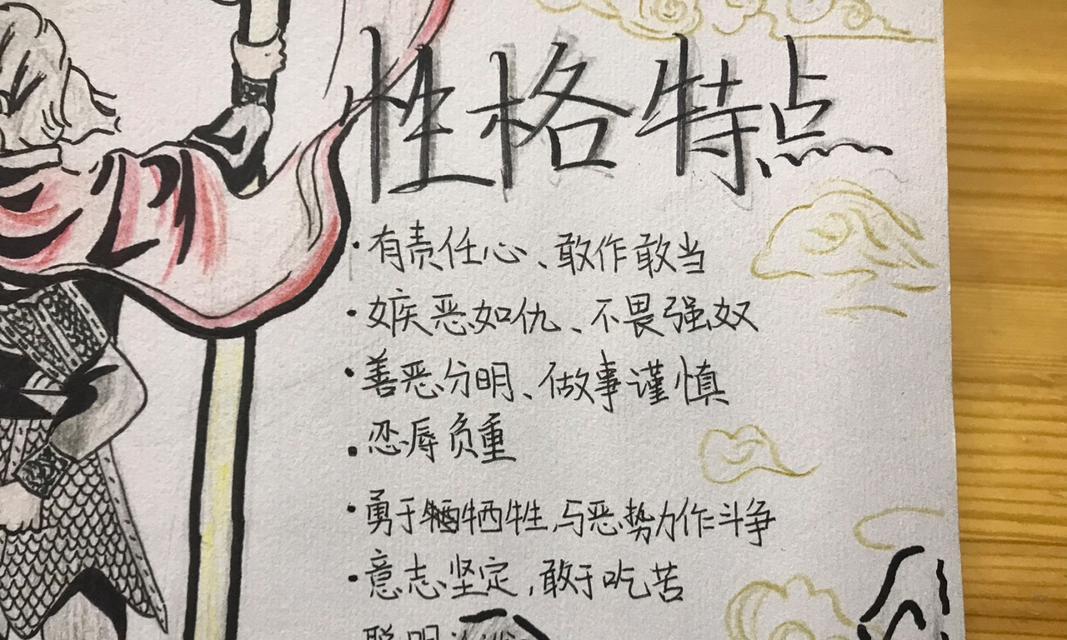 性格特点
·有责任心、敢作敢当
·嫉恶如仇、不畏强奴
·善恶分明、做事谨慎
·忍辱负重
·勇于牺牲,与恶势力作斗争
·意志坚定,敢于吃苦
聪明